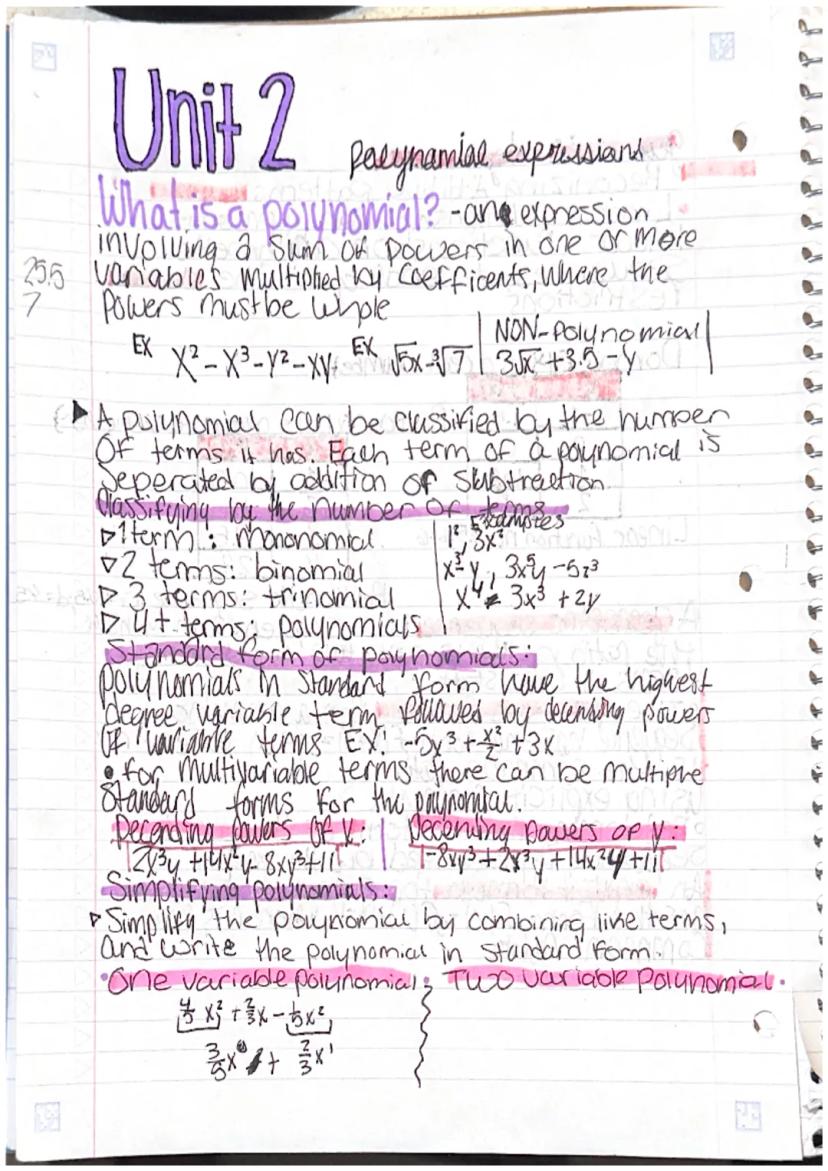 Unit 2
Polynomial expressions
What is a polynomial? - an expression
involving a sum of powers in one or more
variables multiplied by coefficents, where the
powers must be whole
25.5
7
EX x² - x³ - y² - xy EX √5x - ³√7 NON-polynomial
3√x + 3.5 - y
A polynomial can be classified by the number
Of terms it has. Each term of a polynomial is
Seperated by addition or subtraction.
Classifying by the number of terms
Examples
1 term: mononomial 1², 3x²
2 terms: binomial x³y, 3x⁵y - 5z³
3 terms: trinomial x⁴ - 3x³ + 2y
4+ terms; polynomials
Standard form of polynomials:
polynomials in standard form have the highest
degree variable term followed by decending powers
Of variable terms EX: -5x³ + x²/2 + 3x
• for multivariable terms there can be multiple
Standard forms for the polynomial.
Decending powers of x: Decending powers of y:
2x³y + 14x²y - 8xy³ + 11 -8xy³ + 2x³y + 14x²y + 11
Simplifying polynomials:
Simplify the polynomial by combining like terms,
and write the polynomial in standard form.
• One variable polynomial: Two variable polynomial.
4/5 x² + 2/3x - 1/5x²
3/5x + 2/3x¹